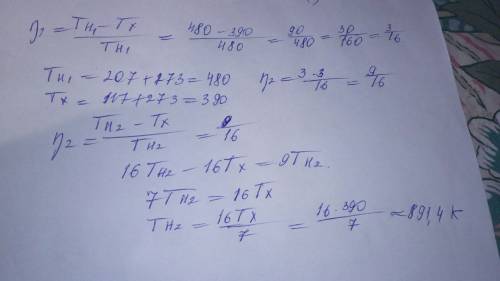 η₁ = (Tн₁ − Tх) / Tн₁ = (480 − 390) / 480 = 90/480 = 30/160 = 3/16
Tн₁ = 207 + 273 = 480    η₂ = (3·3)/16 = 9/16
Tх = 117 + 273 = 390
η₂ = (Tн₂ − Tх) / Tн₂ = 9/16
16Tн₂ − 16Tх = 9Tн₂.
7Tн₂ = 16Tх
Tн₂ = 16Tх/7 = (16·390)/7 ≈ 891,4 К